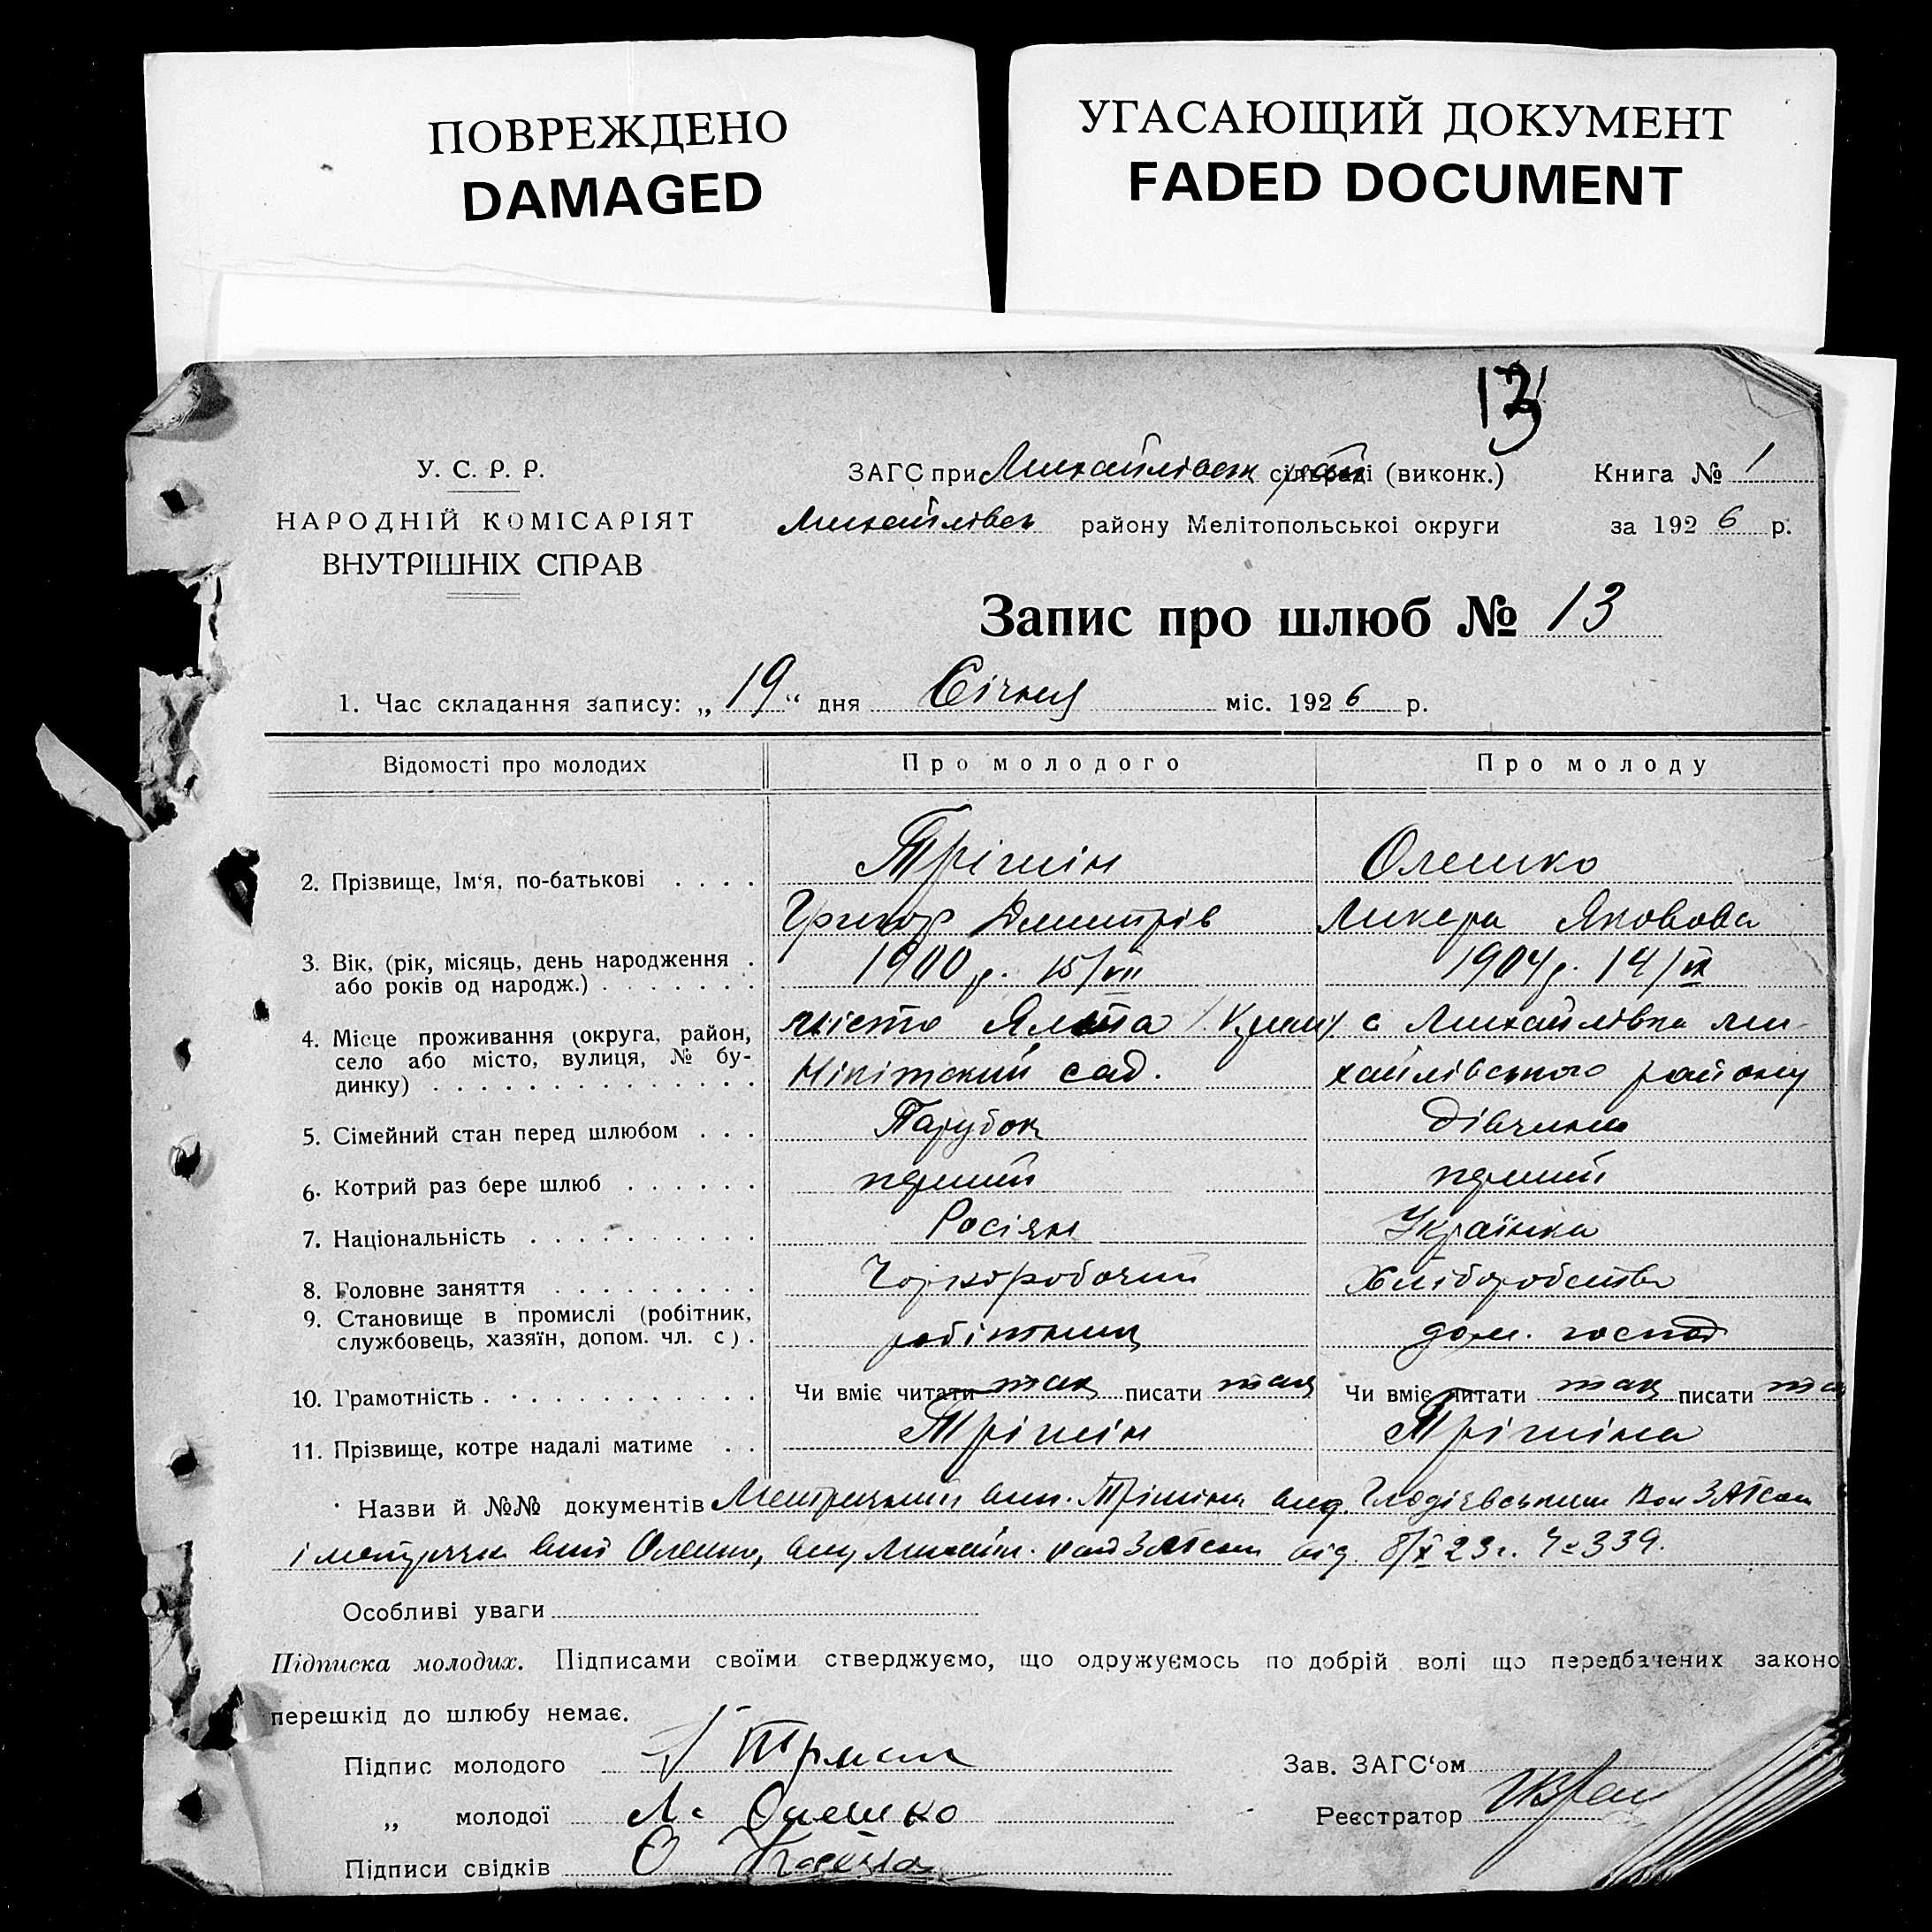 ПОВРЕЖДЕНО
DAMAGED
УГАСАЮЩИЙ ДОКУМЕНТ
FADED DOCUMENT
13
У. С. Р. Р.
НАРОДНІЙ КОМІСАРІЯТ
ВНУТРІШНІХ СПРАВ
ЗАГС при Михайлівськ сільраді (виконк.)
Книга № 1
Михайлівськ району Мелітопольської округи
за 1926 р.
Запис про шлюб № 13
1. Час складання запису: „19“ дня Січня міс. 1926 р.
Відомості про молодих Про молодого Про молоду
2. Прізвище, Ім‘я, по-батькові Трішін Олешко
Григор Дмитрів Ликера Яковова
3. Вік, (рік, місяць, день народження або років од народж.) 1900 р. 15/VII 1904 р. 14/IX
4. Місце проживання (округа, район, село або місто, вулиця, № будинку) місто Ялта (Крим) с Михайлівка Ми-
Нікітский сад. хайлівського району
5. Сімейний стан перед шлюбом Парубок Дівчина
6. Котрий раз бере шлюб перший перший
7. Національність Росіян Українка
8. Головне заняття Чорноробочий Хліборобство
9. Становище в промислі (робітник, службовець, хазяїн, допом. чл. с) робітник дом. господ
10. Грамотність Чи вміє читати так писати так Чи вміє читати так писати так
11. Прізвище, котре надалі матиме Трішін Трішіна
Назви й №№ документів Метричний вип. Трішіна вид. ЗАГСом
і метрична вип Олешко, вид Михайл. рай ЗАГСом від 8/X 23 г. Чс 339.
Особливі уваги
Підписка молодих. Підписами своїми стверджуємо, що одружуємось по добрій волі що передбачених законо
перешкід до шлюбу немає.
Підпис молодого Тришин
Зав. ЗАГС‘ом
„ молодої Л. Олешко
Реєстратор
Підписи свідків О